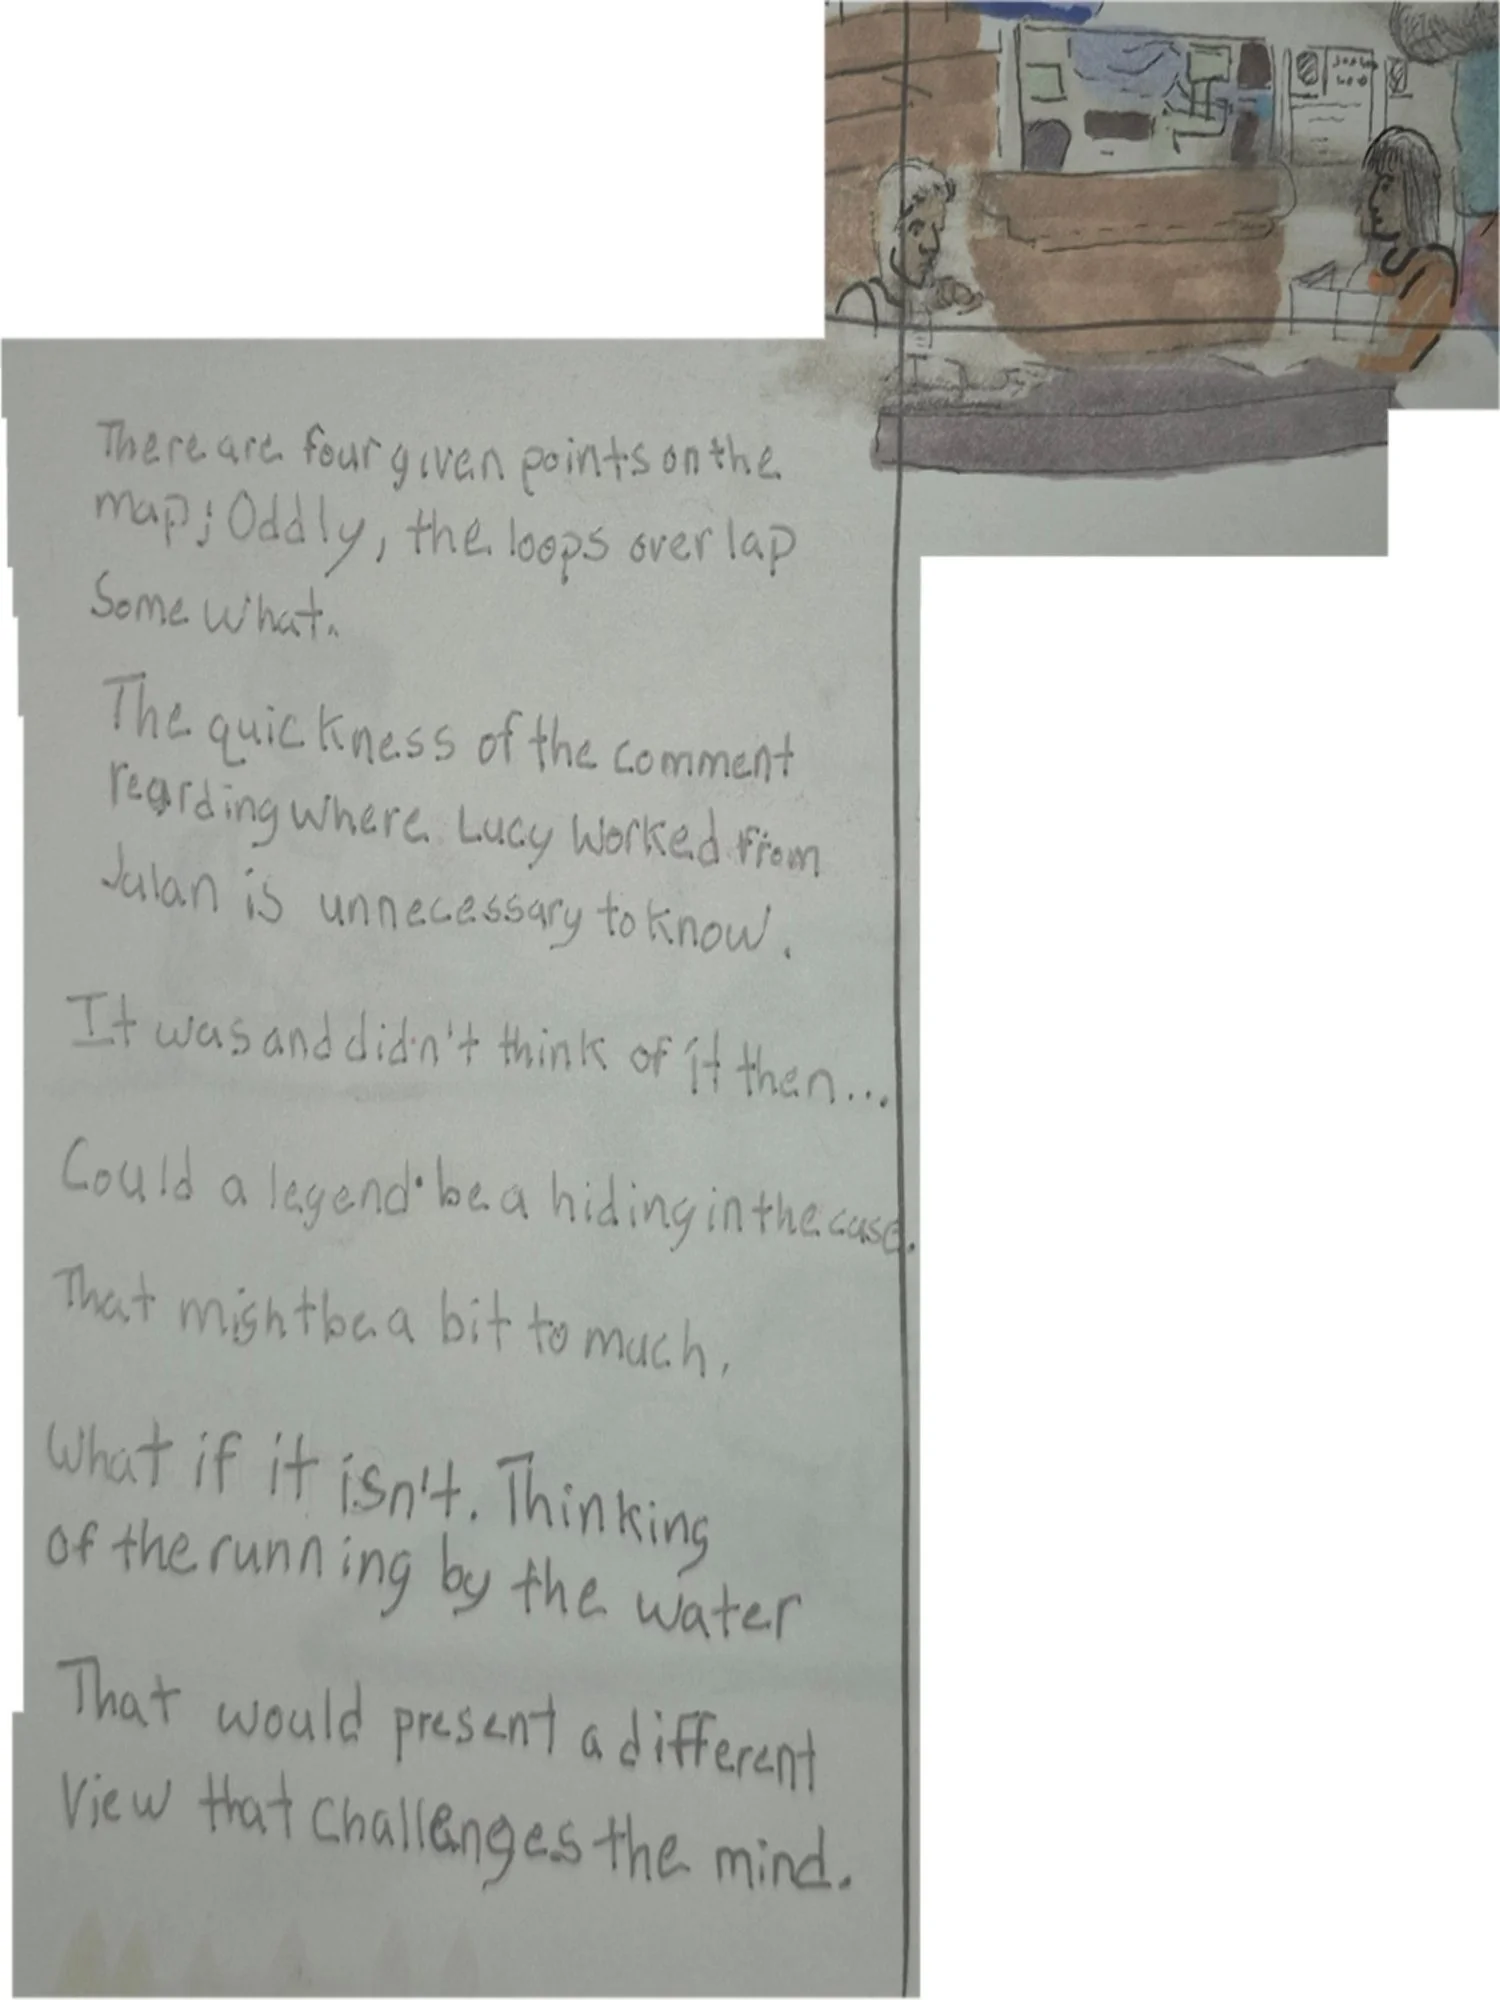 There are four given points on the
map; Oddly, the loops overlap
Some what.
The quickness of the comment
regarding where Lucy worked from
Julan is unnecessary to know.
It was and didn't think of it then...
Could a legend be a hiding in the case.
That might be a bit to much.
What if it isn't. Thinking
of the running by the water
That would present a different
View that challenges the mind.